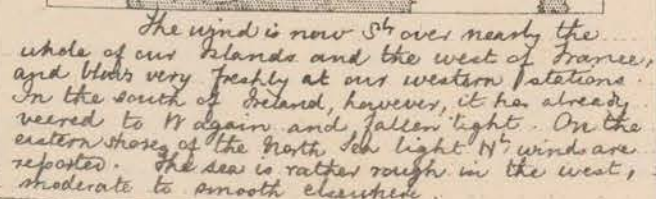 The wind is now Sly over nearly the
whole of our Islands and the west of France,
and blows very freshly at our western stations.
In the south of Ireland, however, it has already
veered to W again and fallen light. On the
eastern shores of the North Sea light Nly winds are
reported. The sea is rather rough in the west,
moderate to smooth elsewhere.